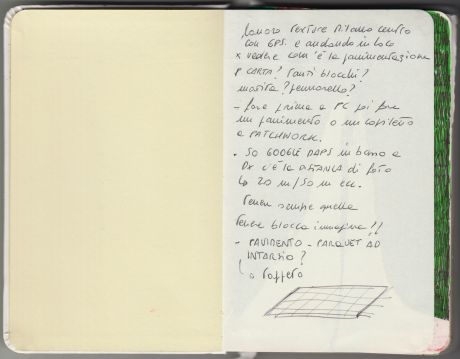 lavoro texture Milano centro
con GPS. e andando in loco
x vedere com'è la pavimentazione
CARTA? Tanti blocchi?
matita? pennarello?
- fare prima a PC poi fare
un pavimento o un
a PATCHWORK.
• SU GOOGLE MAPS in basso a
DX c'è la DISTANZA di foto
↳ 20 m/50 m ecc.
Tenere sempre quella
Tenere blocco immagine!!
- PAVIMENTO - PARQUET AD
INTARSIO?
o